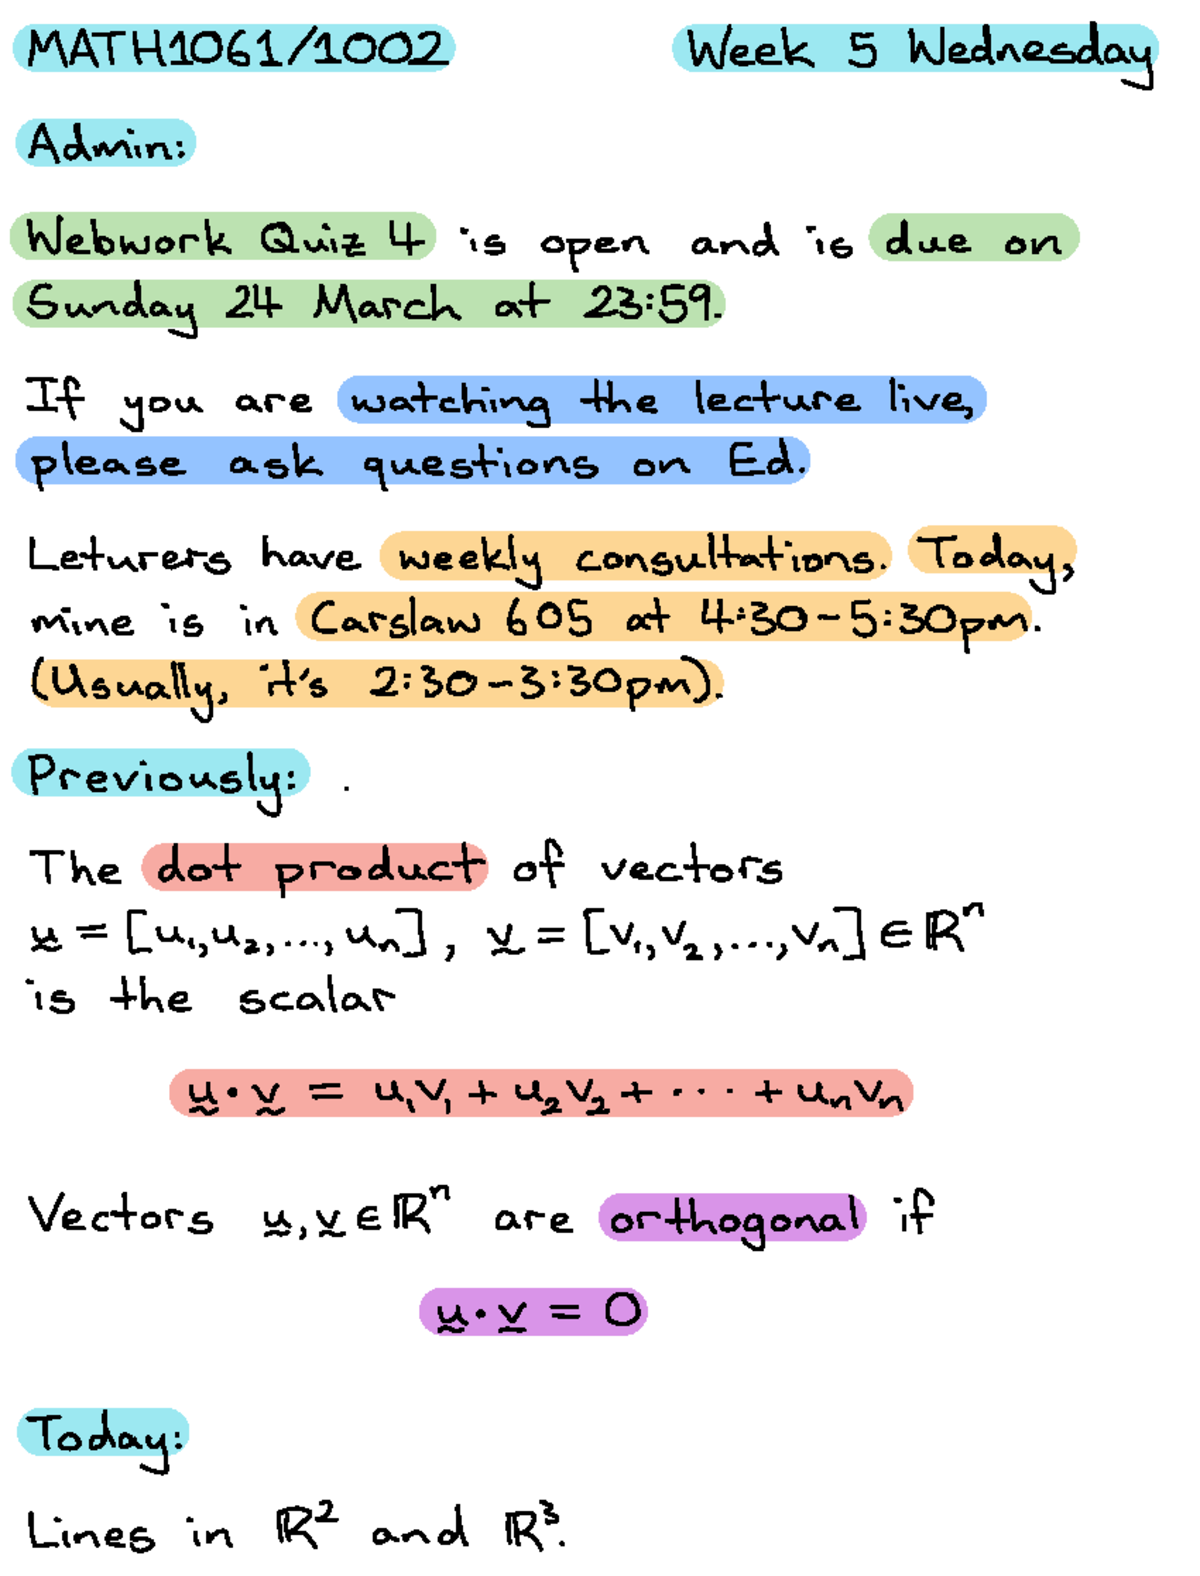 MATH1061/1002 Week 5 Wednesday
Admin:
Webwork Quiz 4 is open and is due on
Sunday 24 March at 23:59.
If you are watching the lecture live,
please ask questions on Ed.
Leturers have weekly consultations. Today,
mine is in Carslaw 605 at 4:30-5:30pm.
(Usually, it's 2:30-3:30pm).
Previously: .
The dot product of vectors
ṵ = [u₁,u₂,..., uₙ], v̰ = [v₁,v₂,...,vₙ] ∈ ℝⁿ
is the scalar
ṵ·v̰ = u₁v₁ + u₂v₂ + ··· + uₙvₙ
Vectors ṵ,v̰ ∈ ℝⁿ are orthogonal if
ṵ·v̰ = 0
Today:
Lines in ℝ² and ℝ³.